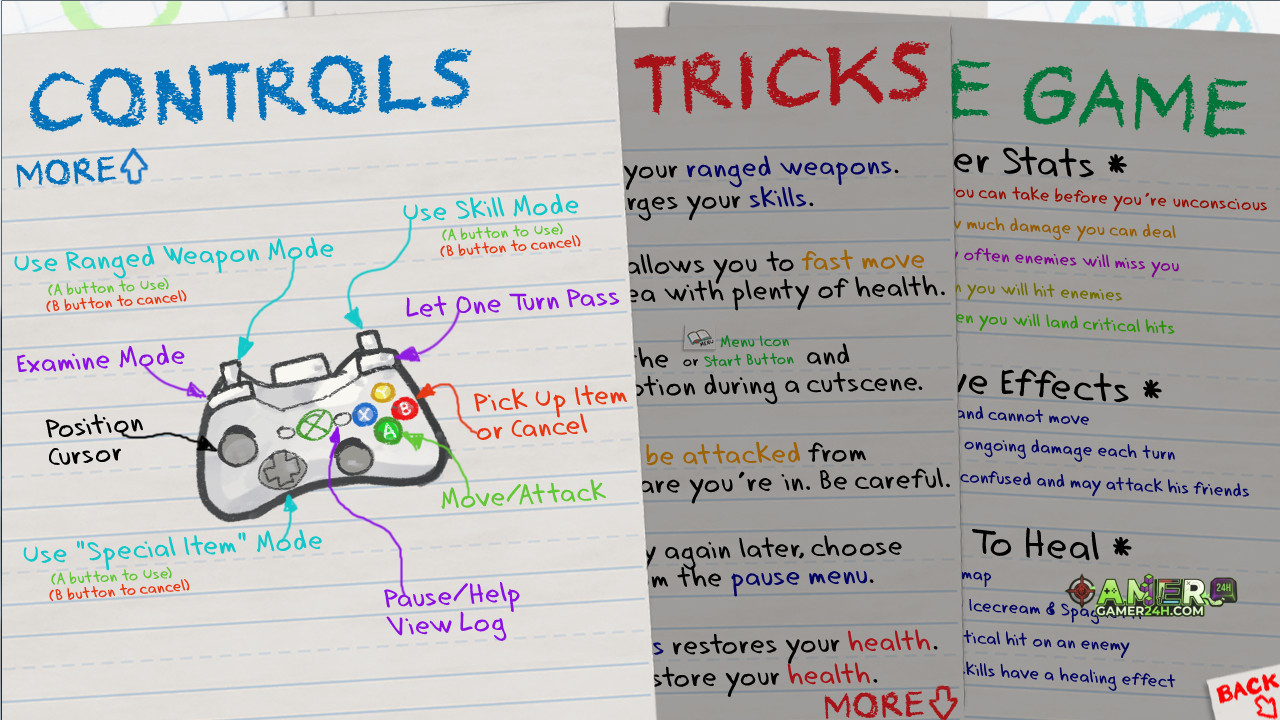 CONTROLS
MORE
Use Skill Mode
(A button to Use)
(B button to cancel)
Use Ranged Weapon Mode
(A button to Use)
(B button to cancel)
Let One Turn Pass
Examine Mode
Pick Up Item
or Cancel
Position
Cursor
Y
X
B
A
Move/Attack
Use "Special Item" Mode
(A button to Use)
(B button to cancel)
Pause/Help
View Log
TRICKS
your ranged weapons.
rges your skills.
allows you to fast move
ea with plenty of health.
the MENU Menu Icon
or Start Button and
otion during a cutscene.
be attacked from
are you're in. Be careful.
y again later, choose
m the pause menu.
s restores your health.
store your health.
MORE
E GAME
er Stats *
ou can take before you're unconscious
w much damage you can deal
y often enemies will miss you
n you will hit enemies
en you will land critical hits
ve Effects *
and cannot move
ongoing damage each turn
confused and may attack his friends
To Heal *
map
Icecream & Spag
tical hit on an enemy
kills have a healing effect
GAMER 24H
GAMER24H.COM
BACK